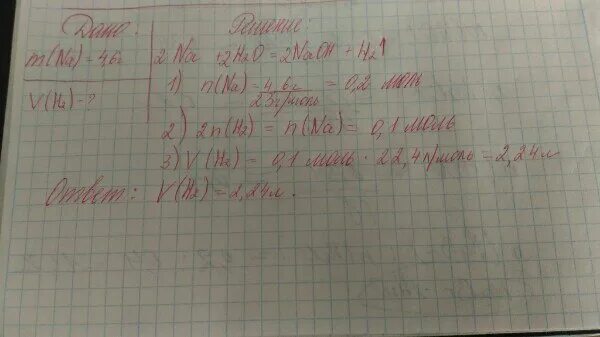 Дано:
m(Na) = 4,6г
V(H₂) - ?
Решение:
2 Na + 2H₂O = 2NaOH + H₂↑
1) n(Na) = 4,6г / 23г/моль = 0,2 моль
2) 2n(H₂) = n(Na) = 0,1 моль
3) V(H₂) = 0,1 моль · 22,4л/моль = 2,24л
Ответ: V(H₂) = 2,24л.